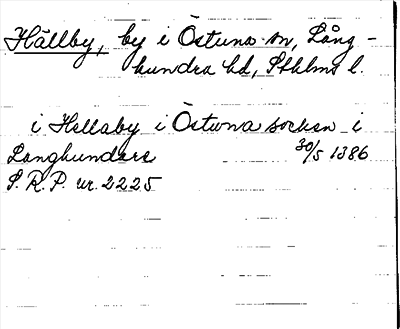 Hällby, by i Östuna sn, Lång-
hundra hd, Sthlms l.
i Hellaby i Östuna socken i
Langhundare 30/5 1386
S. R. P. nr. 2225